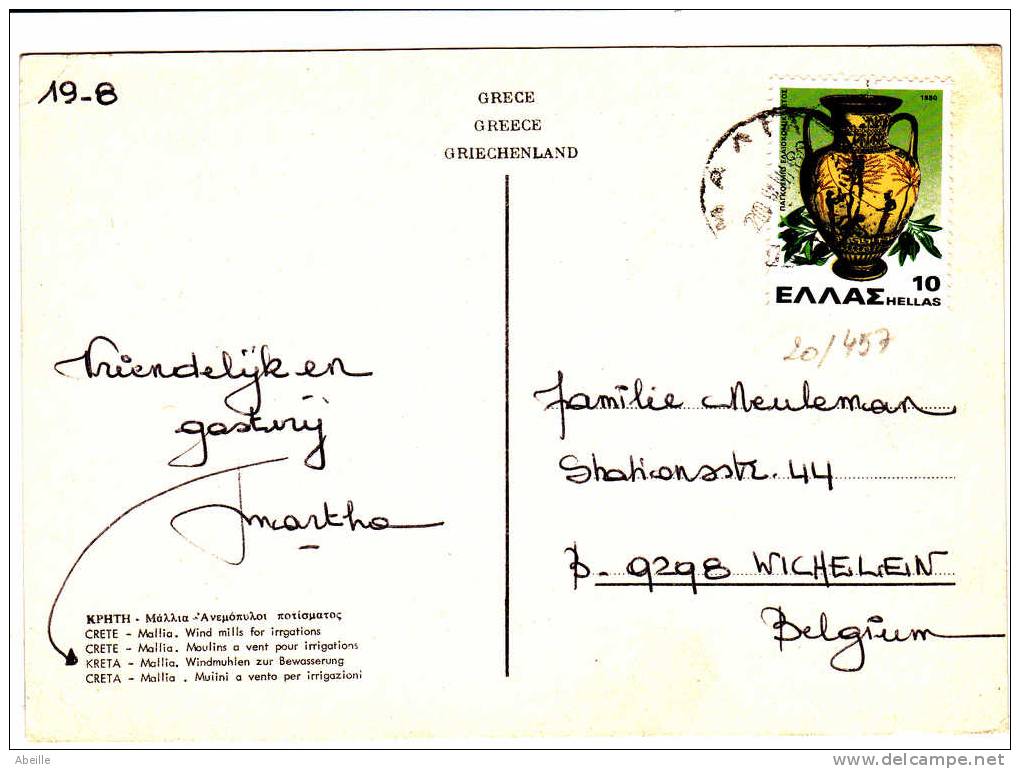 19-8
GRECE
GREECE
GRIECHENLAND
1980
ΕΛΛΑΣ HELLAS
10
20/457
Vriendelijk en
gastvrij
Martha
ΚΡΗΤΗ - Μάλλια - Ἀνεμόπυλοι ποτίσματος
CRETE - Mallia. Wind mills for irrgations
CRETE - Mallia. Moulins a vent pour irrigations
KRETA - Mallia. Windmuhlen zur Bewasserung
CRETA - Mallia . Muiini a vento per irrigazioni
Familie Meuleman
Stationsstr. 44
B - 9298 WICHELEIN
Belgium
Abeille
www.delcampe.net